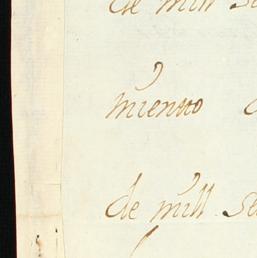 de mill se
miento
de mill se